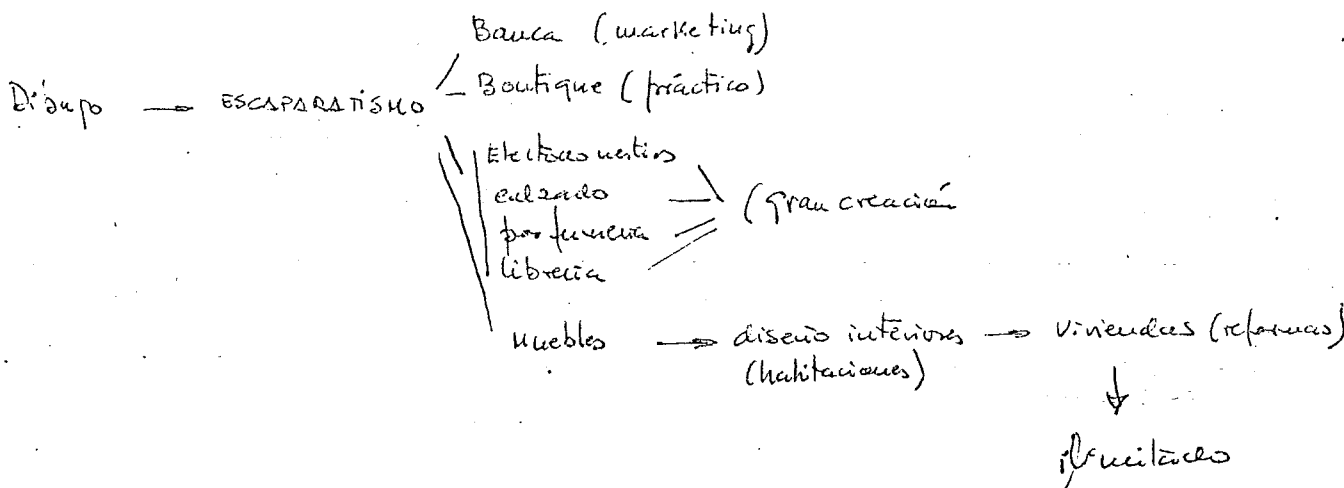 Banca (marketing)
→ ESCAPARATISMO
Boutique (práctico)
Electrodomesticos
calzado
perfumeria
libreria
(gran creación
Muebles → diseño interiores → viviendas (reformas)
(habitaciones)